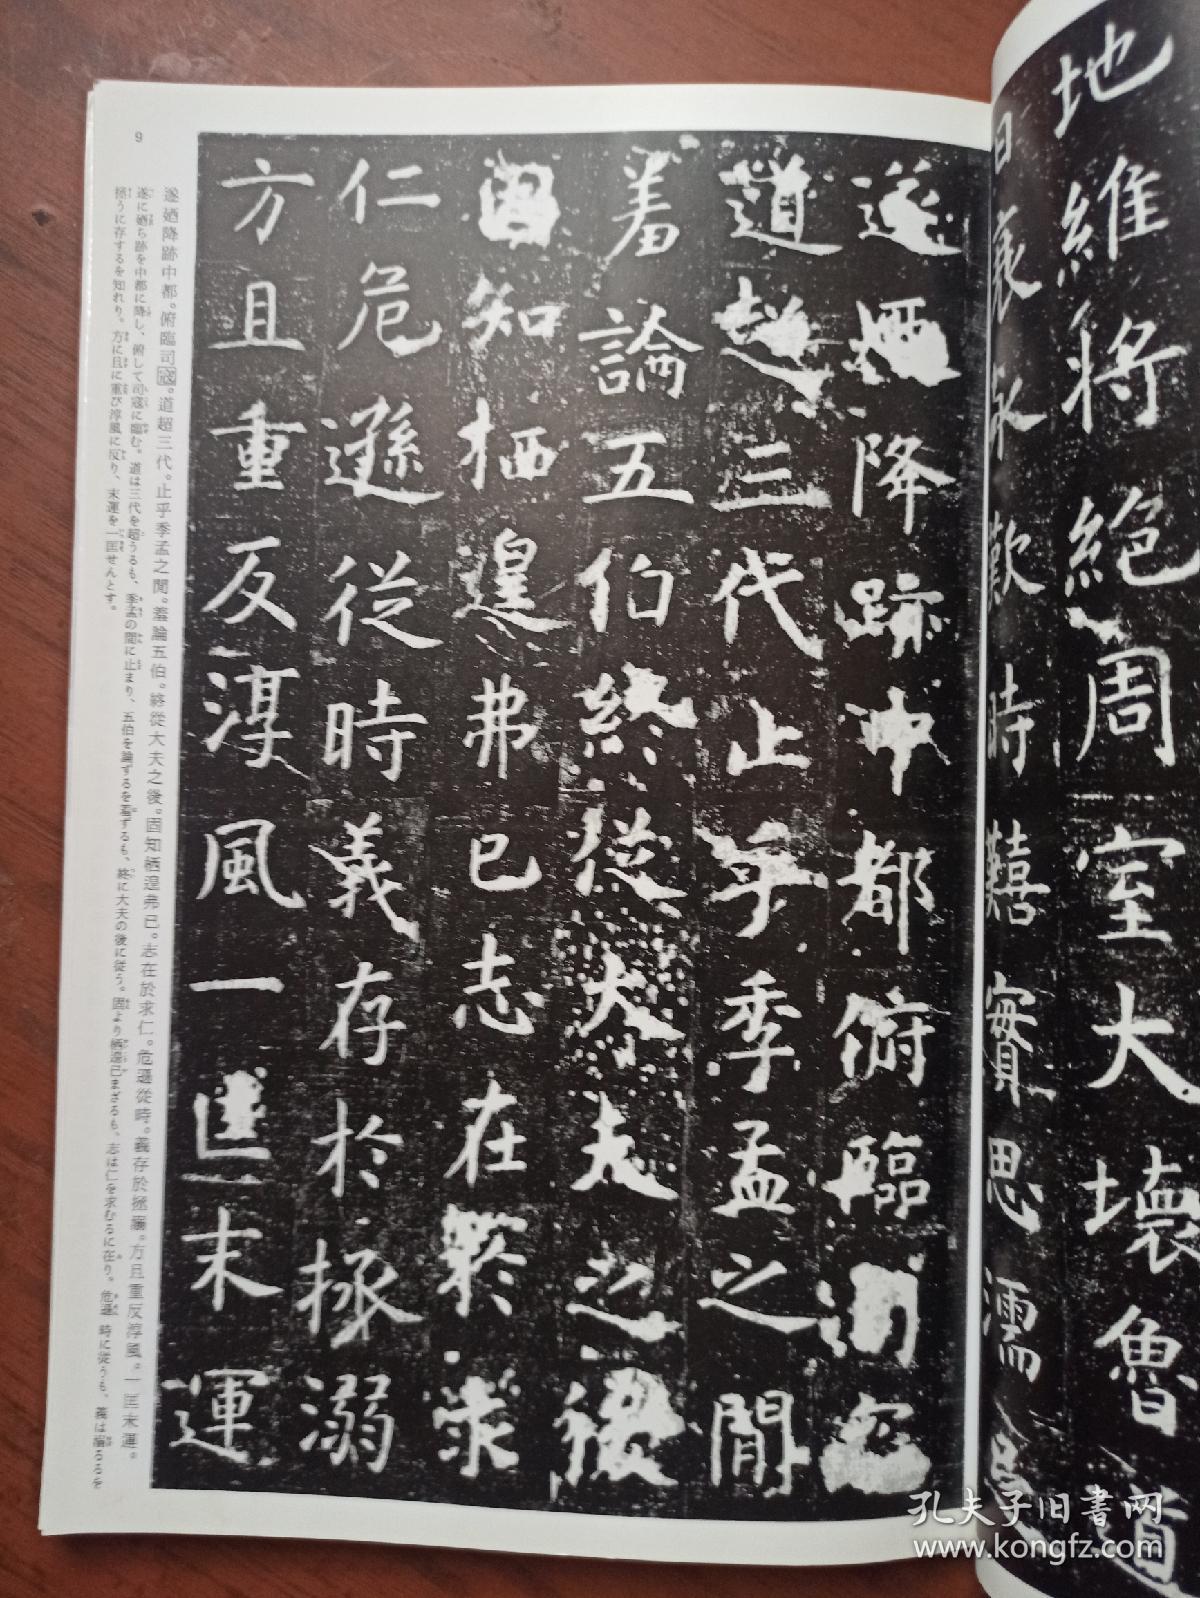 地維將絕周室大壞魯道
日哀永歎時鞱實思濡
遂迺降跡中都俯臨司
道超三代止乎季孟之閒
羞論五伯終從大夫之後
固知栖遑弗已志在於求
仁危遜從時義存於拯溺
方且重反淳風一匡末運
9
遂迺降跡中都。俯臨司寇。道超三代。止乎季孟之閒。羞論五伯。終從大夫之後。固知栖遑弗已。志在於求仁。危遜從時。義存於拯溺。方且重反淳風。一匡末運。
遂に迺ち跡を中都に降し、俯して司寇に臨む。道は三代を超うるも、季孟の閒に止まり、五伯を論ずるを羞ずるも、終に大夫の後に従う。固より栖遑已まざるも、志は仁を求むるに在り。危遜 時に従うも、義は溺るるを
拯うに存するを知れり。方に且に重び淳風に反り、末運を一匡せんとす。
孔夫子旧书网
www.kongfz.com